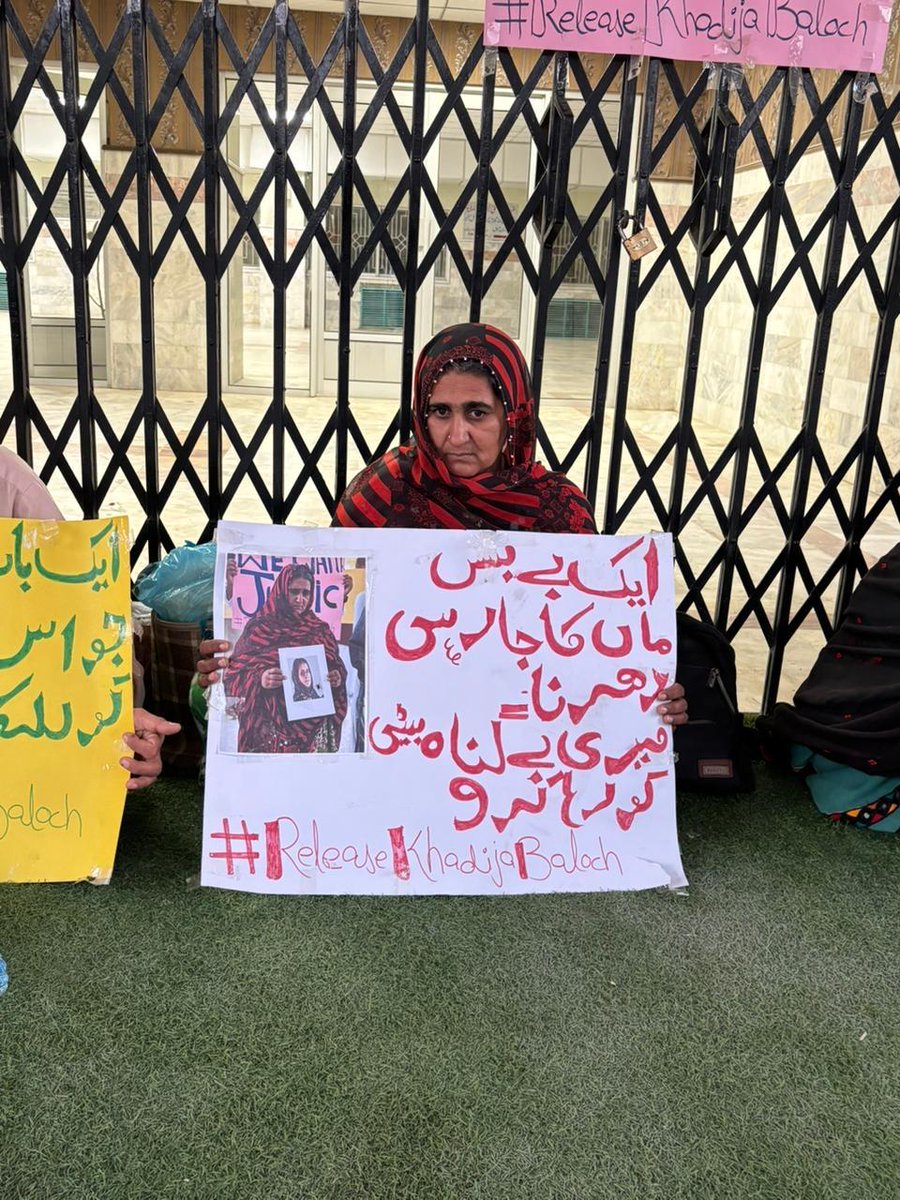 #Release Khadija Baloch
ایک
جو اس
کو
aloch
WE
Justic
ایک بے بس
ماں کا جا رہی ہے
دھرنا
میری بے گناہ بیٹی
کو رہا کرو
#Release Khadija Baloch